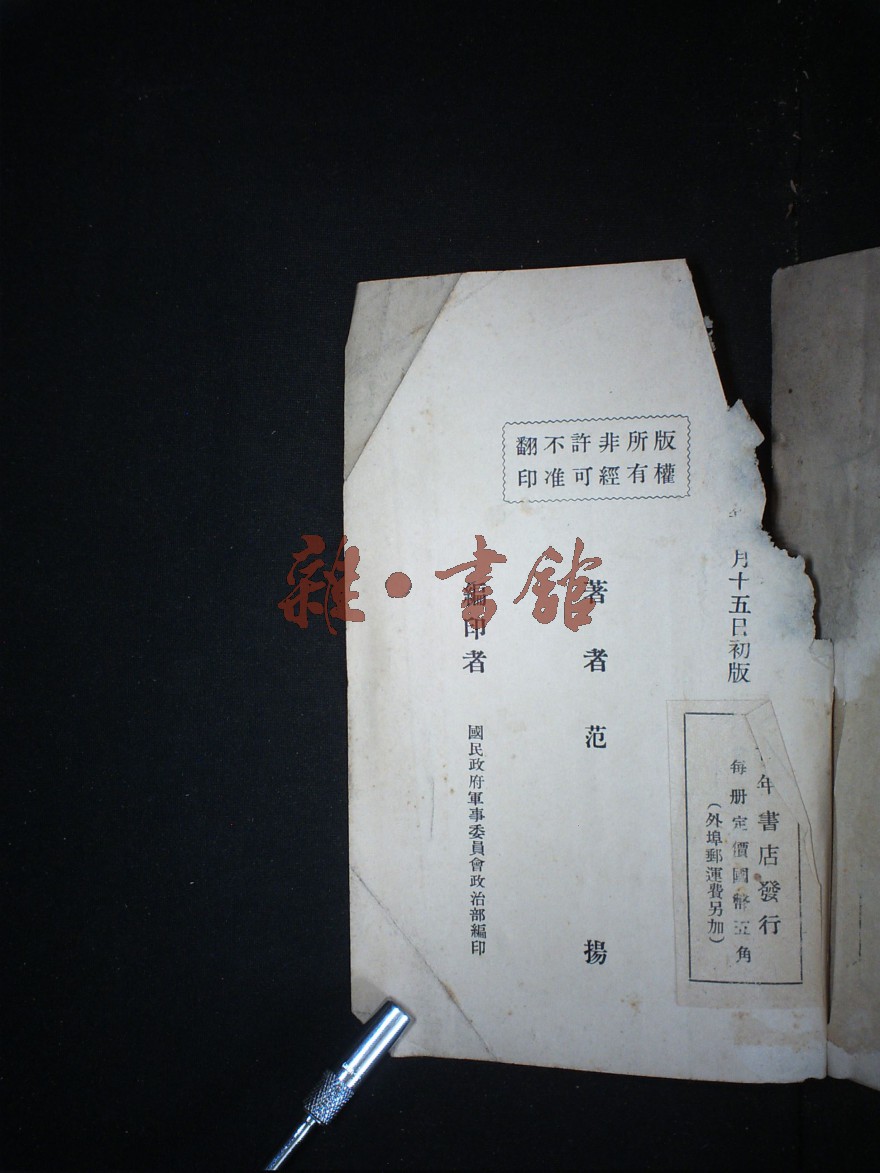 版權所有非經許可不准翻印
月十五日初版
著者范揚
編印者 國民政府軍事委員會政治部編印
年書店發行
每册定價國幣五角
(外埠郵運費另加)
雜·書館